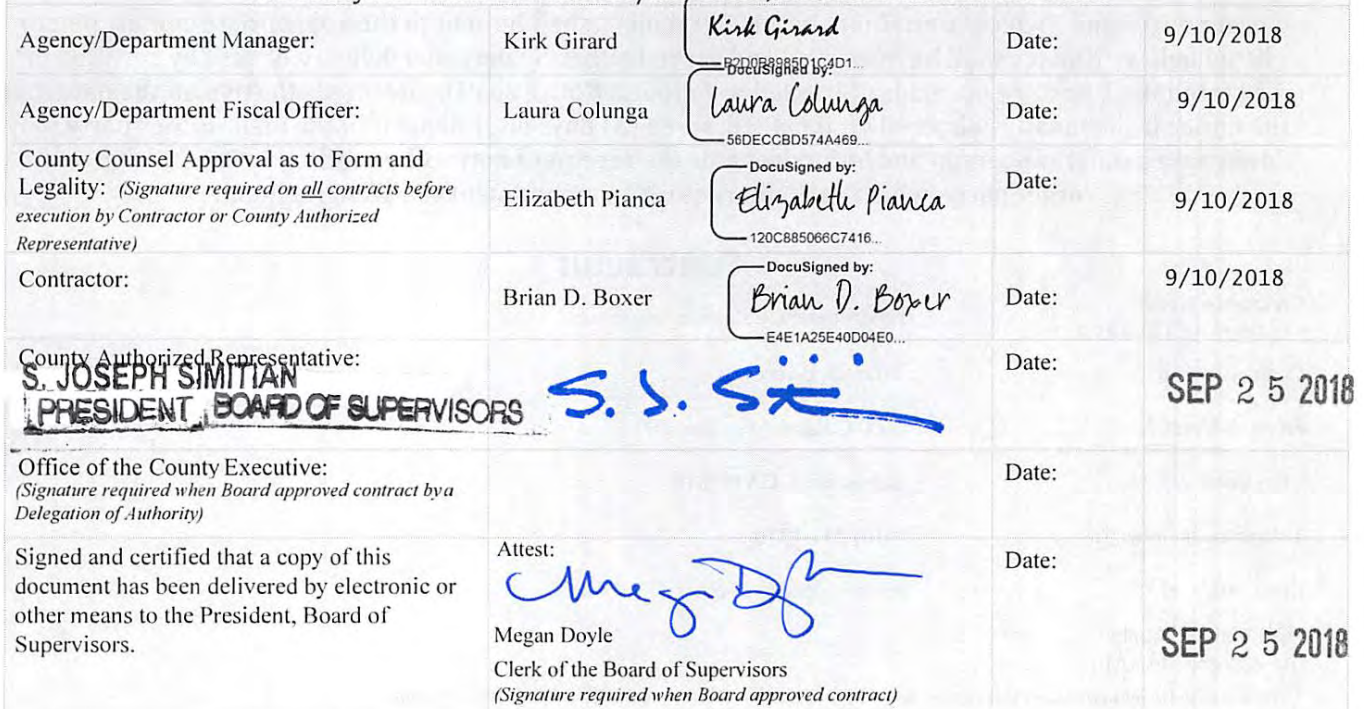 Agency/Department Manager: Kirk Girard Kirk Girard Date: 9/10/2018
B2D0B8985D1C4D1...
DocuSigned by:
Agency/Department Fiscal Officer: Laura Colunga Laura Colunga Date: 9/10/2018
56DECCBD574A469...
County Counsel Approval as to Form and
Legality: (Signature required on all contracts before
execution by Contractor or County Authorized
Representative)
Elizabeth Pianca
DocuSigned by:
Elizabeth Pianca
120C885066C7416...
Date: 9/10/2018
Contractor:
Brian D. Boxer
DocuSigned by:
Brian D. Boxer
E4E1A25E40D04E0...
Date: 9/10/2018
County Authorized Representative:
S. JOSEPH SIMITIAN
PRESIDENT, BOARD OF SUPERVISORS
S. J. S
Date: SEP 25 2018
Office of the County Executive:
(Signature required when Board approved contract by a
Delegation of Authority)
Date:
Signed and certified that a copy of this
document has been delivered by electronic or
other means to the President, Board of
Supervisors.
Attest:
Megan Doyle
Clerk of the Board of Supervisors
(Signature required when Board approved contract)
Date: SEP 25 2018